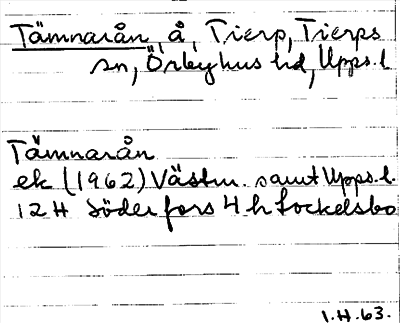 Tämnarån, å, Tierp, Tierps
sn, Örbyhus hd, Upps. l
Tämnarån
ek (1962) Västm. samt Upps. l.
12 H Söderfors 4 h Lockelsbo
I.H.63.